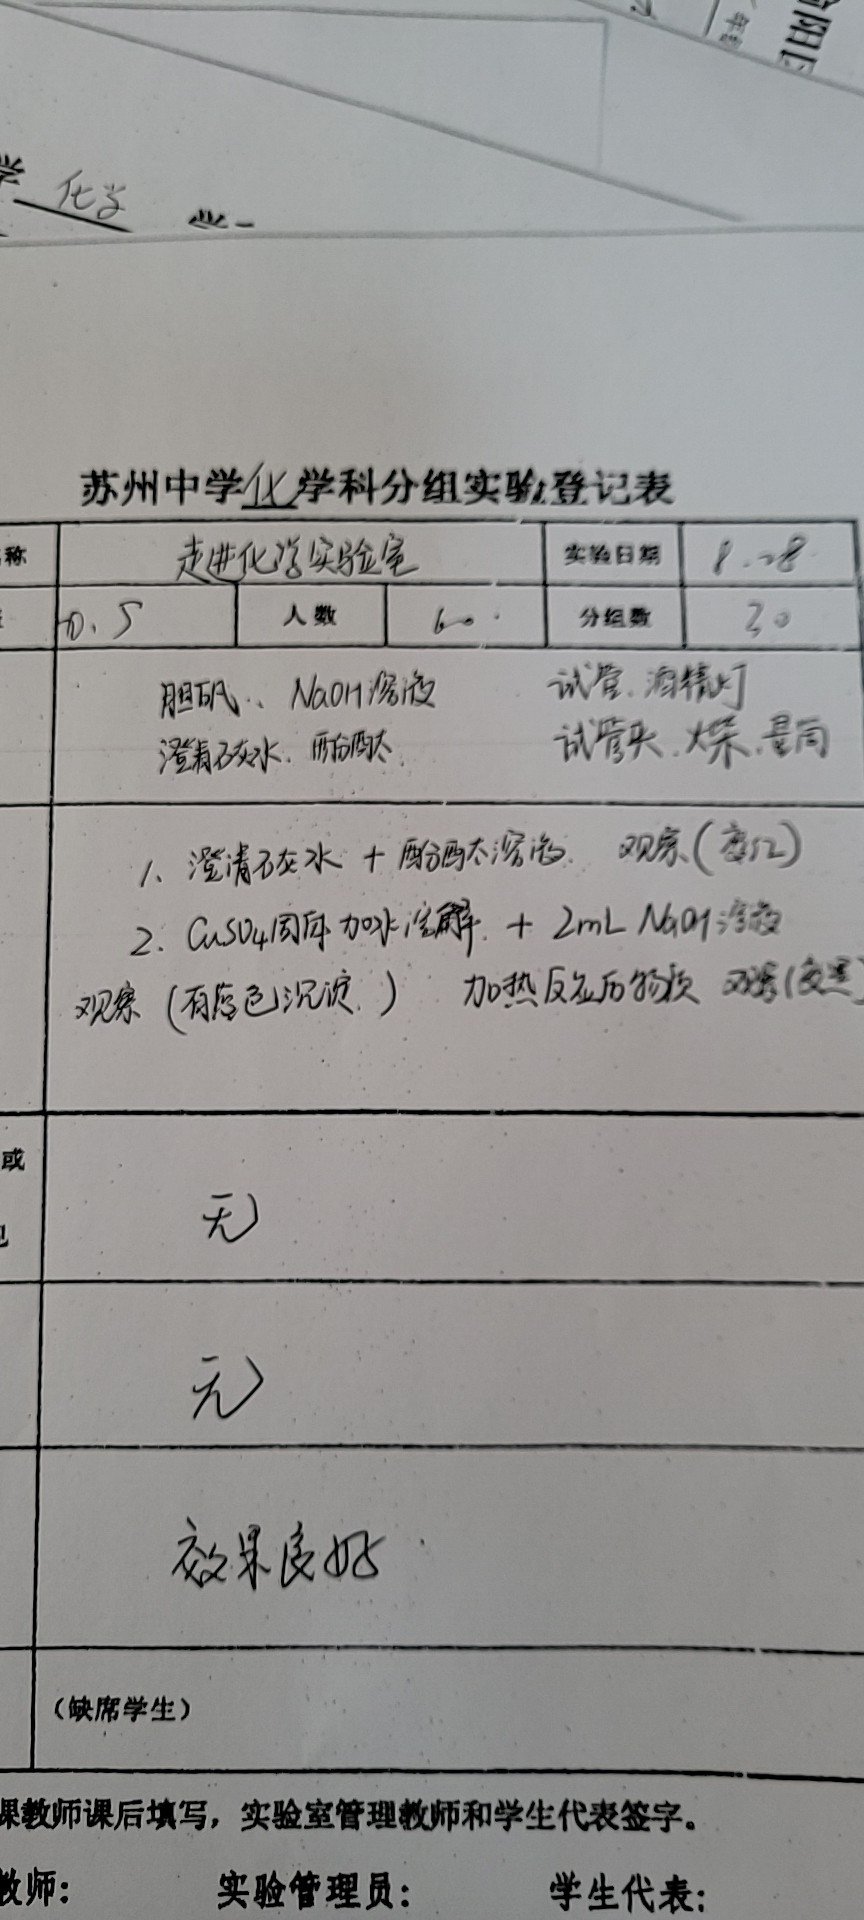 化学
苏州中学化学科分组实验登记表
称 走进化学实验室 实验日期 8.28
0.5 人数 60 分组数 30
胆矾、NaOH溶液 试管、酒精灯
澄清石灰水、酚酞 试管夹、火柴、量筒
1、澄清石灰水 + 酚酞溶液 观察(变红)
2、CuSO4固体加水溶解 + 2mL NaOH溶液
观察(有蓝色沉淀) 加热反应后物质 观察(变黑)
或
无
无
效果良好
(缺席学生)
课教师课后填写，实验室管理教师和学生代表签字。
教师: 实验管理员: 学生代表: